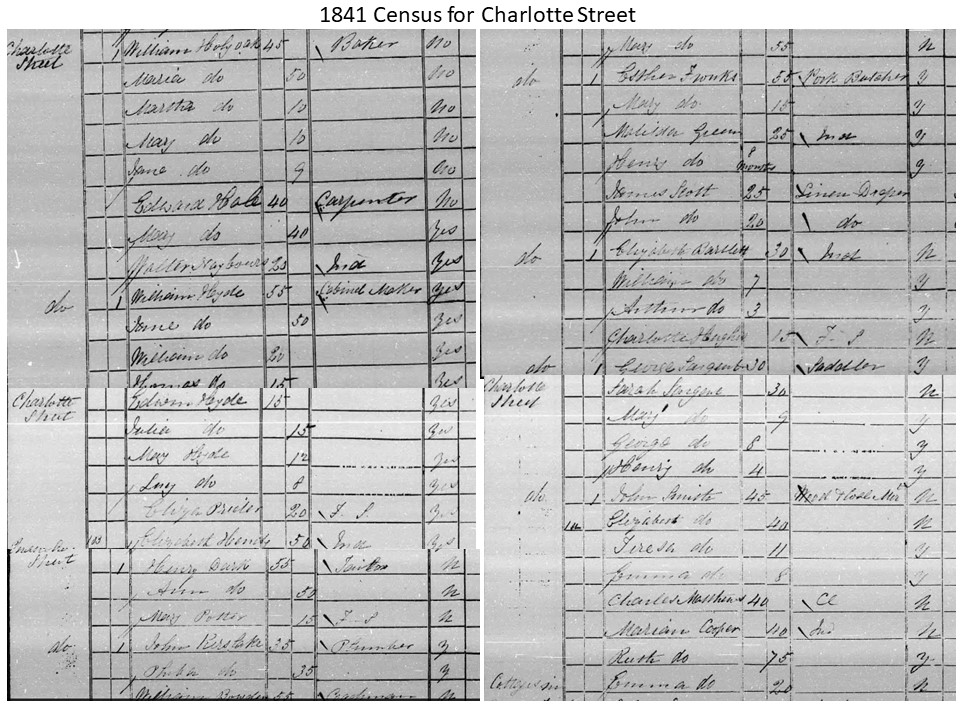 1841 Census for Charlotte Street
Charlotte 1 William Holyoak 45 Baker No
Street
Maria do 50 No
Martha do 10 No
Mary do 10 No
Jane do 9 No
Edward Hale 40 Carpenter No
Mary do 40 Yes
Walter 25 Ind Yes
do 1 William Hyde 55 Cabinet Maker Yes
Jane do 50 Yes
William do 20 Yes
Thomas do 15 Yes
Charlotte Edwin Hyde 15 Yes
Street
Julia do 15 Yes
Mary Hyde 12 Yes
Lucy do 8 Yes
Eliza 20 F. S. Yes
Elizabeth 50 Ind Yes
Street
1 Henry 55 N
Ann do 50 N
Mary 15 F. S N
do 1 John 35 Plumber y
do 35 y
William 55 N
Mary do 55 N
do 1 Esther 55 Pork Butcher y
Mary do 15 y
Matilda Green 25 Ind y
Henry do 8 months y
James Scott 25 Linen Draper
John do 20 do
do 1 Elizabeth Bartlett 30 Ind N
William do 7 y
Arthur do 3 y
Charlotte Hughes 15 F. S N
do 1 George 30 Saddler y
Charlotte Sarah 30 N
Street
Mary do 9 y
George do 8 y
Henry do 4 y
do 1 John Smith 45 N
Elizabeth do 40 N
Teresa do 11 y
Emma do 8 y
Charles Matthews 40 Cl N
Marian Cooper 40 Ind N
Ruth do 75 y
Emma do 20 N